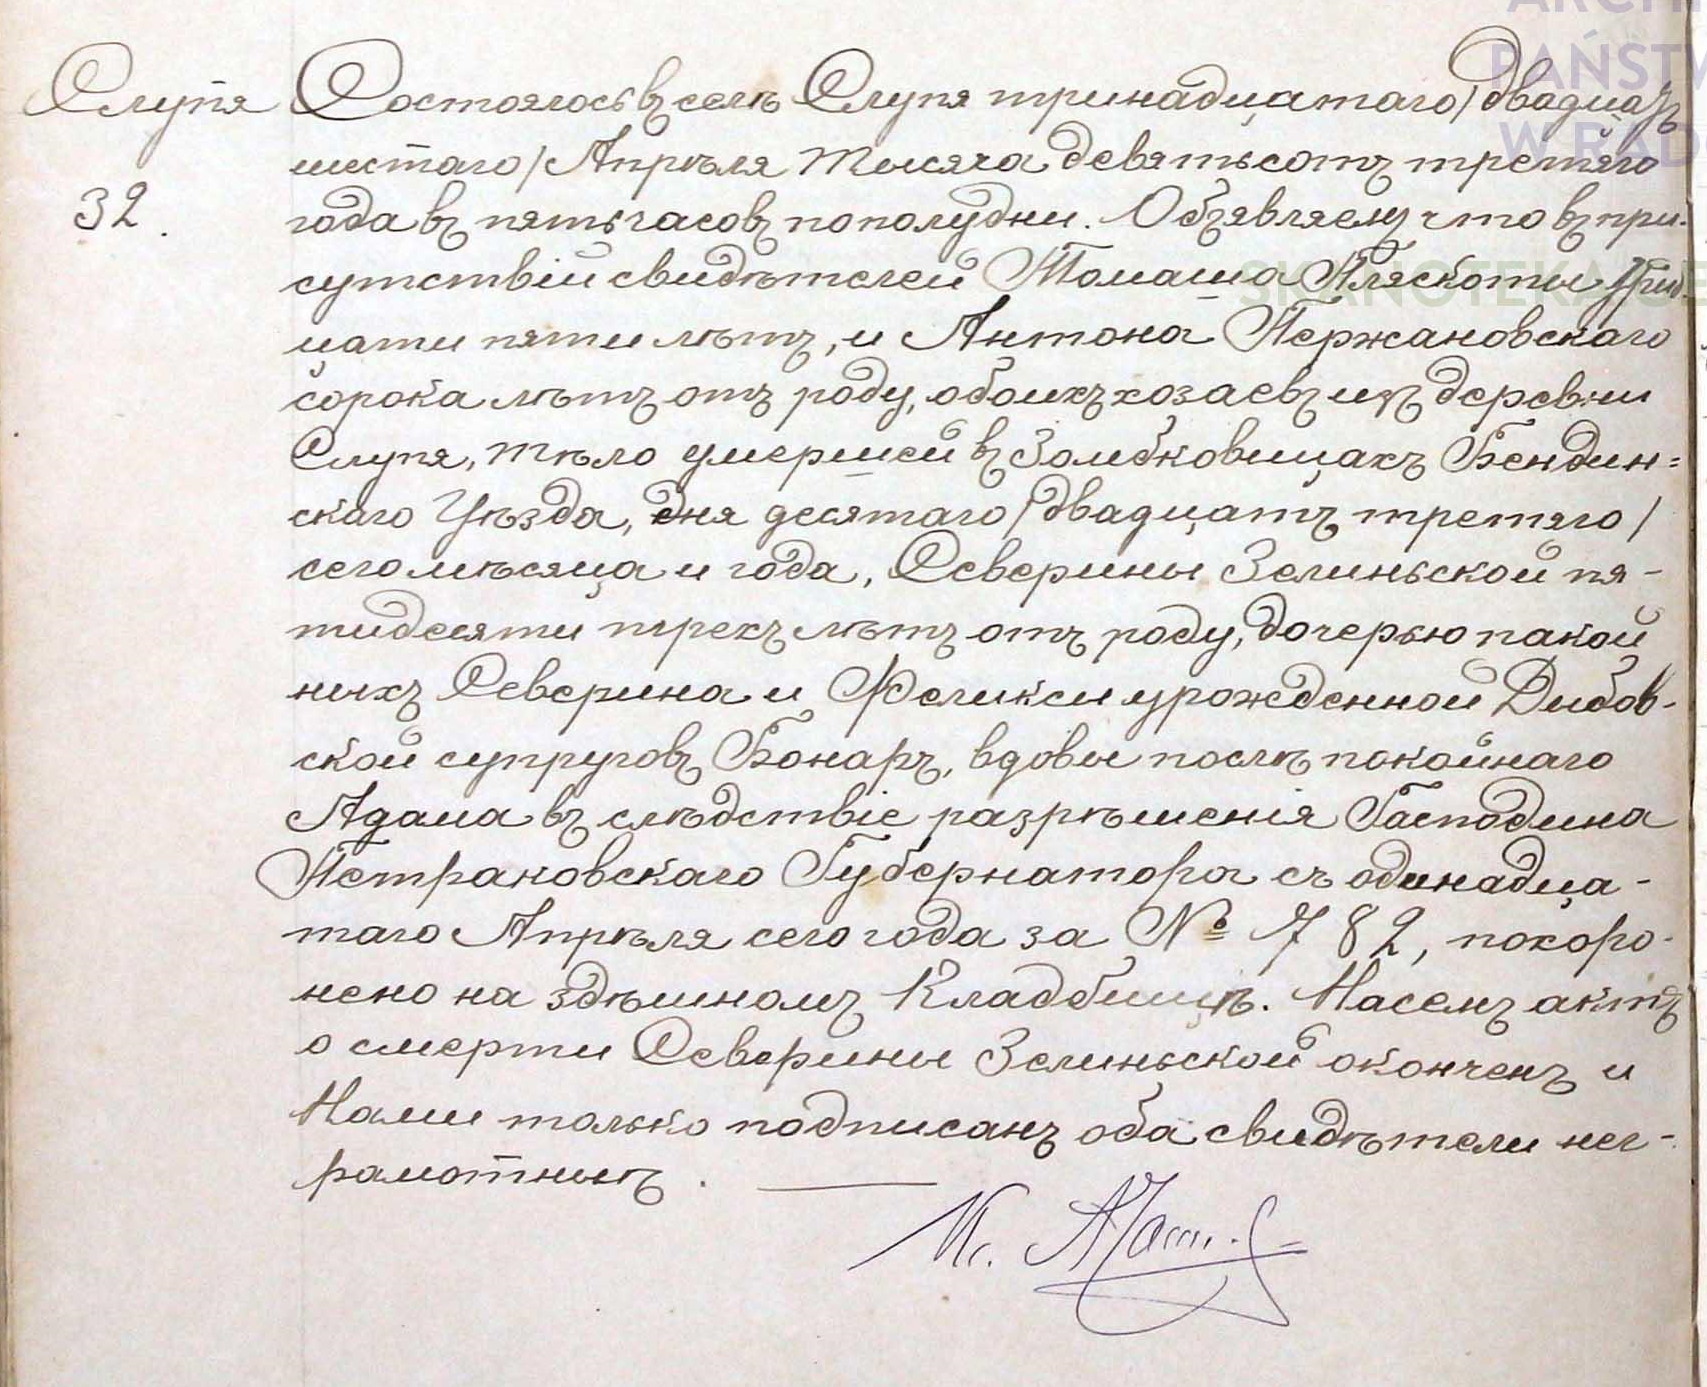 Слупя
32.
Состоялось въ селѣ Слупя тринадцатаго /двадцать
шестаго/ Апрѣля тысяча девятьсотъ третяго
года въ пять часовъ пополудни. Объявляемъ что въ при-
сутствіи свидѣтелей Томаша Пляскоты трид-
цати пяти лѣтъ, и Антона Пержановскаго
сорока лѣтъ отъ роду, обоихъ хозаевъ изъ деревни
Слупя, тѣло умершей въ Зомбковицахъ Бендин=
скаго Уѣзда, дня десятаго /двадцать третяго/
сего мѣсяца и года, Северины Зелиньской пя-
тидесяти трехъ лѣтъ отъ роду, дочерью пакой
ныхъ Северина и Феликсы урожденной Дибов-
ской супруговъ Бонаръ, вдовы послѣ покойнаго
Адама въ слѣдствіе разрѣшенія Господина
Петраковскаго Губернатора съ одинадца-
таго Апрѣля сего года за № 782, похоро-
нено на здѣшномъ Кладбищѣ. Насемъ актъ
о смерти Северины Зелиньской оконченъ и
Нами только подписанъ оба свидѣтели нег-
рамотныѣ.
ARCHI
PAŃSTW
W RAD
SKANOTEKA